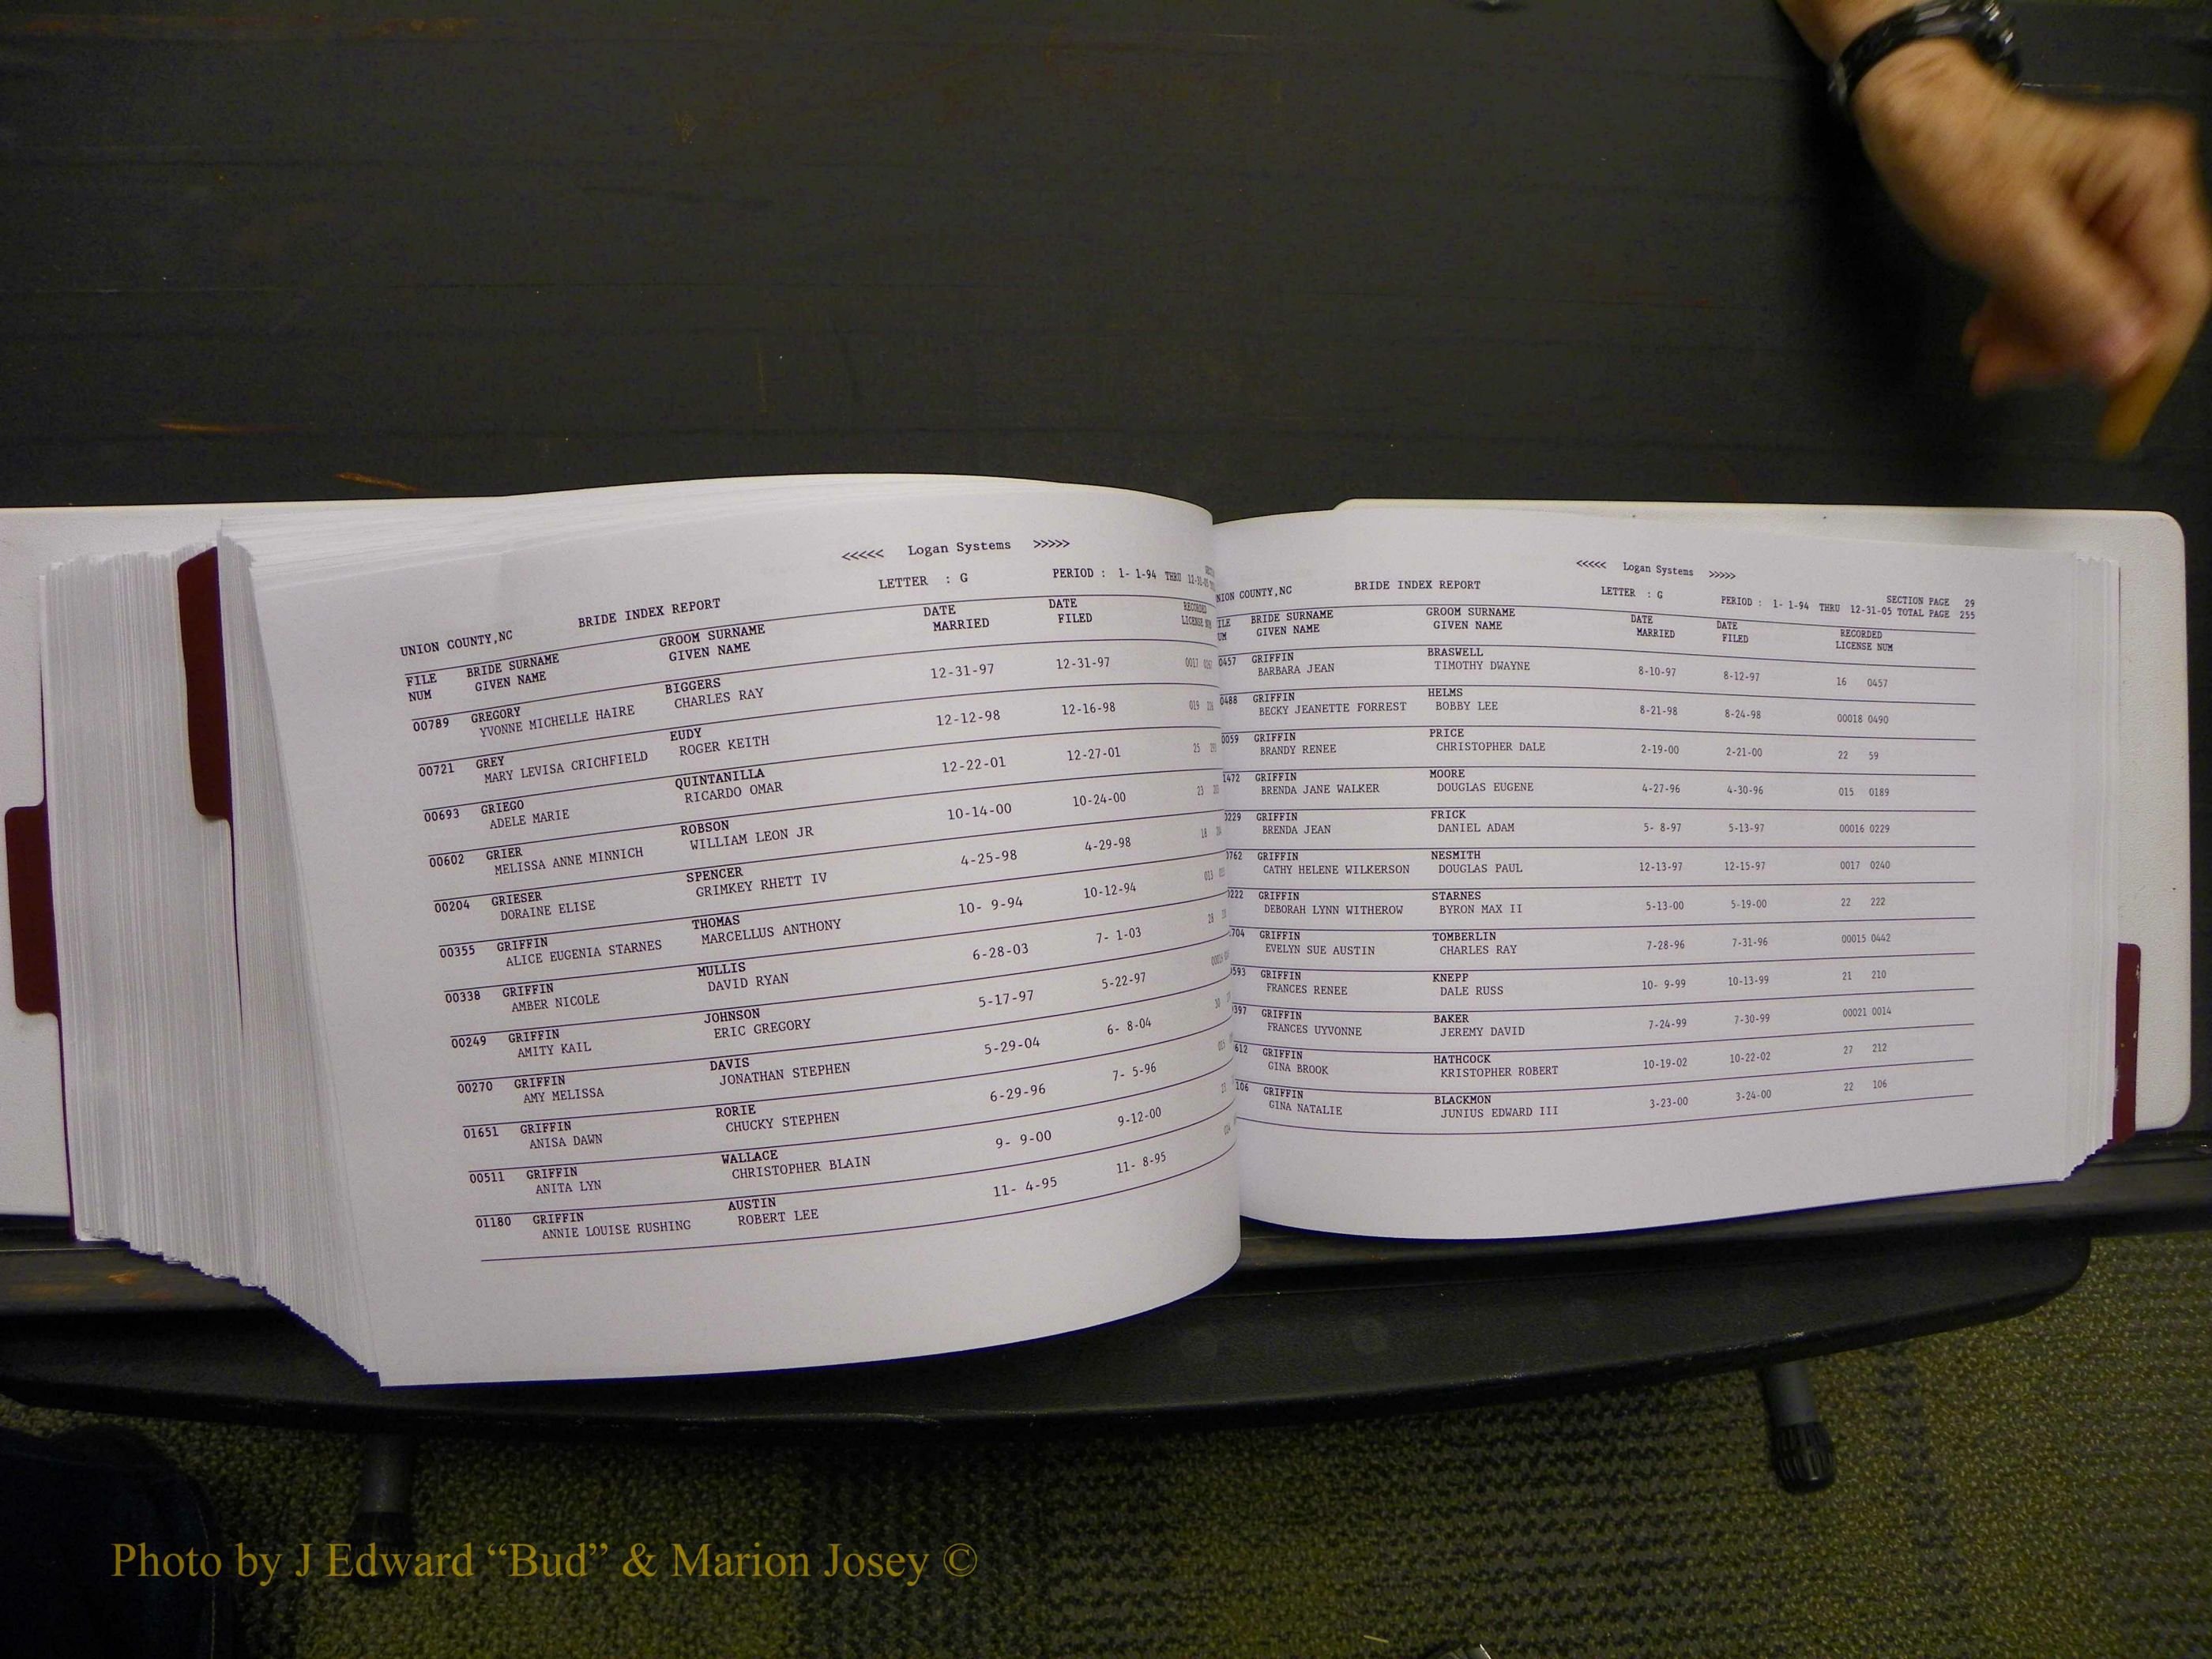 <<<<< Logan Systems >>>>>
UNION COUNTY,NC BRIDE INDEX REPORT LETTER : G PERIOD : 1- 1-94 THRU
FILE NUM BRIDE SURNAME GIVEN NAME GROOM SURNAME GIVEN NAME DATE MARRIED DATE FILED RECORDED LICENSE
00789 GREGORY BIGGERS 12-31-97 12-31-97 0017
YVONNE MICHELLE HAIRE CHARLES RAY
00721 GREY EUDY 12-12-98 12-16-98 019
MARY LEVISA CRICHFIELD ROGER KEITH
00693 GRIEGO QUINTANILLA 12-22-01 12-27-01 25
ADELE MARIE RICARDO OMAR
00602 GRIER ROBSON 10-14-00 10-24-00 23
MELISSA ANNE MINNICH WILLIAM LEON JR
00204 GRIESER SPENCER 4-25-98 4-29-98 18
DORAINE ELISE GRIMKEY RHETT IV
00355 GRIFFIN THOMAS 10- 9-94 10-12-94 013
ALICE EUGENIA STARNES MARCELLUS ANTHONY
00338 GRIFFIN MULLIS 6-28-03 7- 1-03 28
AMBER NICOLE DAVID RYAN
00249 GRIFFIN JOHNSON 5-17-97 5-22-97
AMITY KAIL ERIC GREGORY
00270 GRIFFIN DAVIS 5-29-04 6- 8-04
AMY MELISSA JONATHAN STEPHEN
01651 GRIFFIN RORIE 6-29-96 7- 5-96
ANISA DAWN CHUCKY STEPHEN
00511 GRIFFIN WALLACE 9- 9-00 9-12-00
ANITA LYN CHRISTOPHER BLAIN
01180 GRIFFIN AUSTIN 11- 4-95 11- 8-95
ANNIE LOUISE RUSHING ROBERT LEE
<<<<< Logan Systems >>>>>
NION COUNTY,NC BRIDE INDEX REPORT LETTER : G SECTION PAGE 29
PERIOD : 1- 1-94 THRU 12-31-05 TOTAL PAGE 255
ILE BRIDE SURNAME GROOM SURNAME DATE DATE RECORDED
UM GIVEN NAME GIVEN NAME MARRIED FILED LICENSE NUM
0457 GRIFFIN BRASWELL 8-10-97 8-12-97 16 0457
BARBARA JEAN TIMOTHY DWAYNE
0488 GRIFFIN HELMS 8-21-98 8-24-98 00018 0490
BECKY JEANETTE FORREST BOBBY LEE
0059 GRIFFIN PRICE 2-19-00 2-21-00 22 59
BRANDY RENEE CHRISTOPHER DALE
1472 GRIFFIN MOORE 4-27-96 4-30-96 015 0189
BRENDA JANE WALKER DOUGLAS EUGENE
0229 GRIFFIN FRICK 5- 8-97 5-13-97 00016 0229
BRENDA JEAN DANIEL ADAM
0762 GRIFFIN NESMITH 12-13-97 12-15-97 0017 0240
CATHY HELENE WILKERSON DOUGLAS PAUL
0222 GRIFFIN STARNES 5-13-00 5-19-00 22 222
DEBORAH LYNN WITHEROW BYRON MAX II
704 GRIFFIN TOMBERLIN 7-28-96 7-31-96 00015 0442
EVELYN SUE AUSTIN CHARLES RAY
593 GRIFFIN KNEPP 10- 9-99 10-13-99 21 210
FRANCES RENEE DALE RUSS
397 GRIFFIN BAKER 7-24-99 7-30-99 00021 0014
FRANCES UYVONNE JEREMY DAVID
612 GRIFFIN HATHCOCK 10-19-02 10-22-02 27 212
GINA BROOK KRISTOPHER ROBERT
106 GRIFFIN BLACKMON 3-23-00 3-24-00 22 106
GINA NATALIE JUNIUS EDWARD III
Photo by J Edward “Bud” & Marion Josey ©